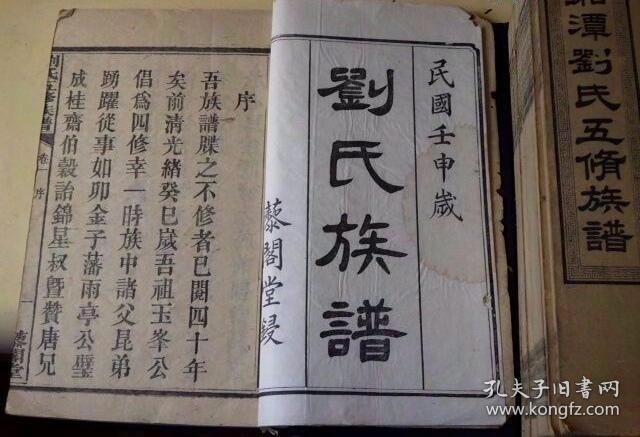 湘潭劉氏五脩族譜
民國壬申歲
劉氏族譜
藜閣堂鋟
序
吾族譜牒之不修者已閱四十年
矣前清光緒癸巳歲吾祖玉峯公
倡爲四修幸一時族中諸父昆弟
踴躍從事如卯金子藩雨亭公璧
成桂齋伯穀詒錦星叔暨贊唐兄
劉氏五修族譜
卷一
序
一
藜閣堂
孔夫子旧书网
www.kongfz.com